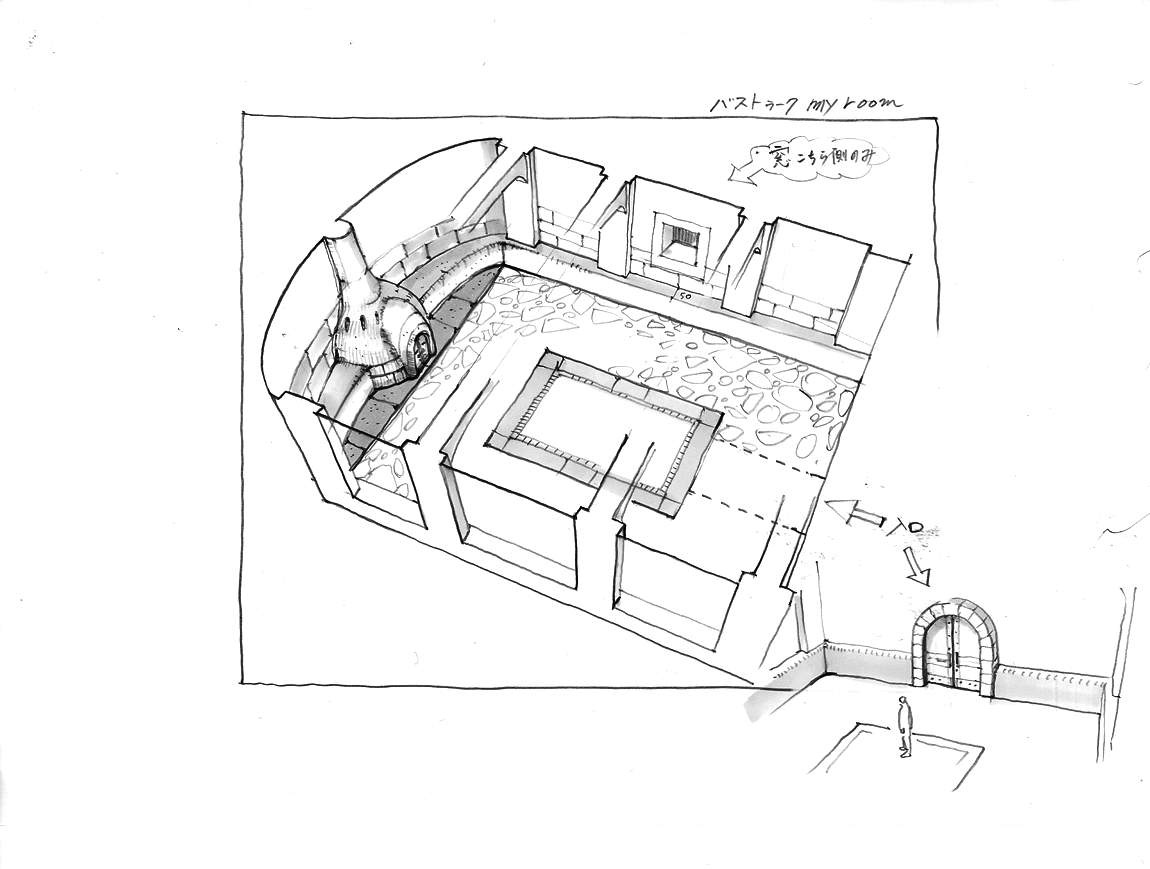 バストゥーク my room
窓こちら側のみ
50
入口